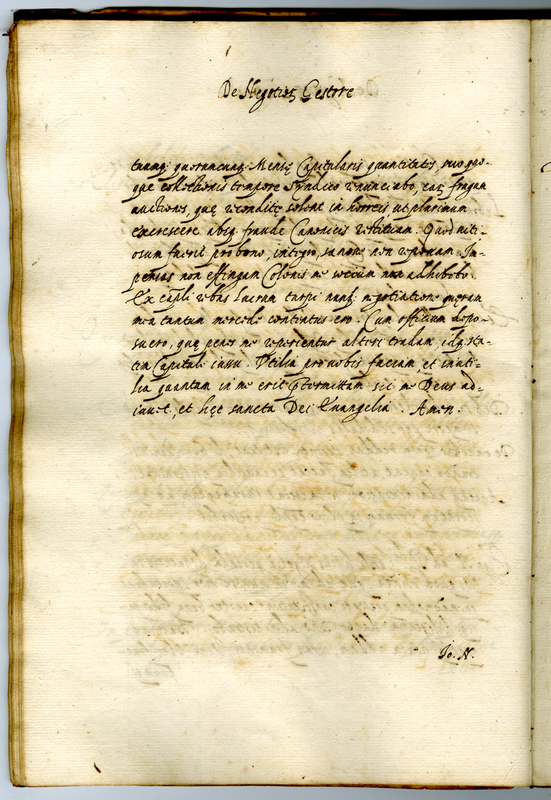 De Negotioꝝ Gestore
tuamq; quorumcunq; Mensę Capitularis quantitates, suo quo-
que collectionis tempore Syndico renunciabo, eas frugum
auctiones, quę reconditę solent in horreis ut plurimum
excrescere absq; fraude Canonicis restituam. Quod viti-
osum fuerit pro bono, integro, sanove non reponam. Im-
pensas non effingam Colonis me coecum non adhibebo
Ex capli rebus lucrum turpi negotiatione quęram
mea tantum mercede contentus ero. Cum officium depo-
suero, quę penes me reperientur alteri tradam, idq; sta-
tim Capituli iussu. Utilia pro vobis faciam et inuti-
lia quantum in me erit prętermittam sic me Deus ad-
iuvet, et hęc sancta Dei Evangelia. Amen.
Io. N.